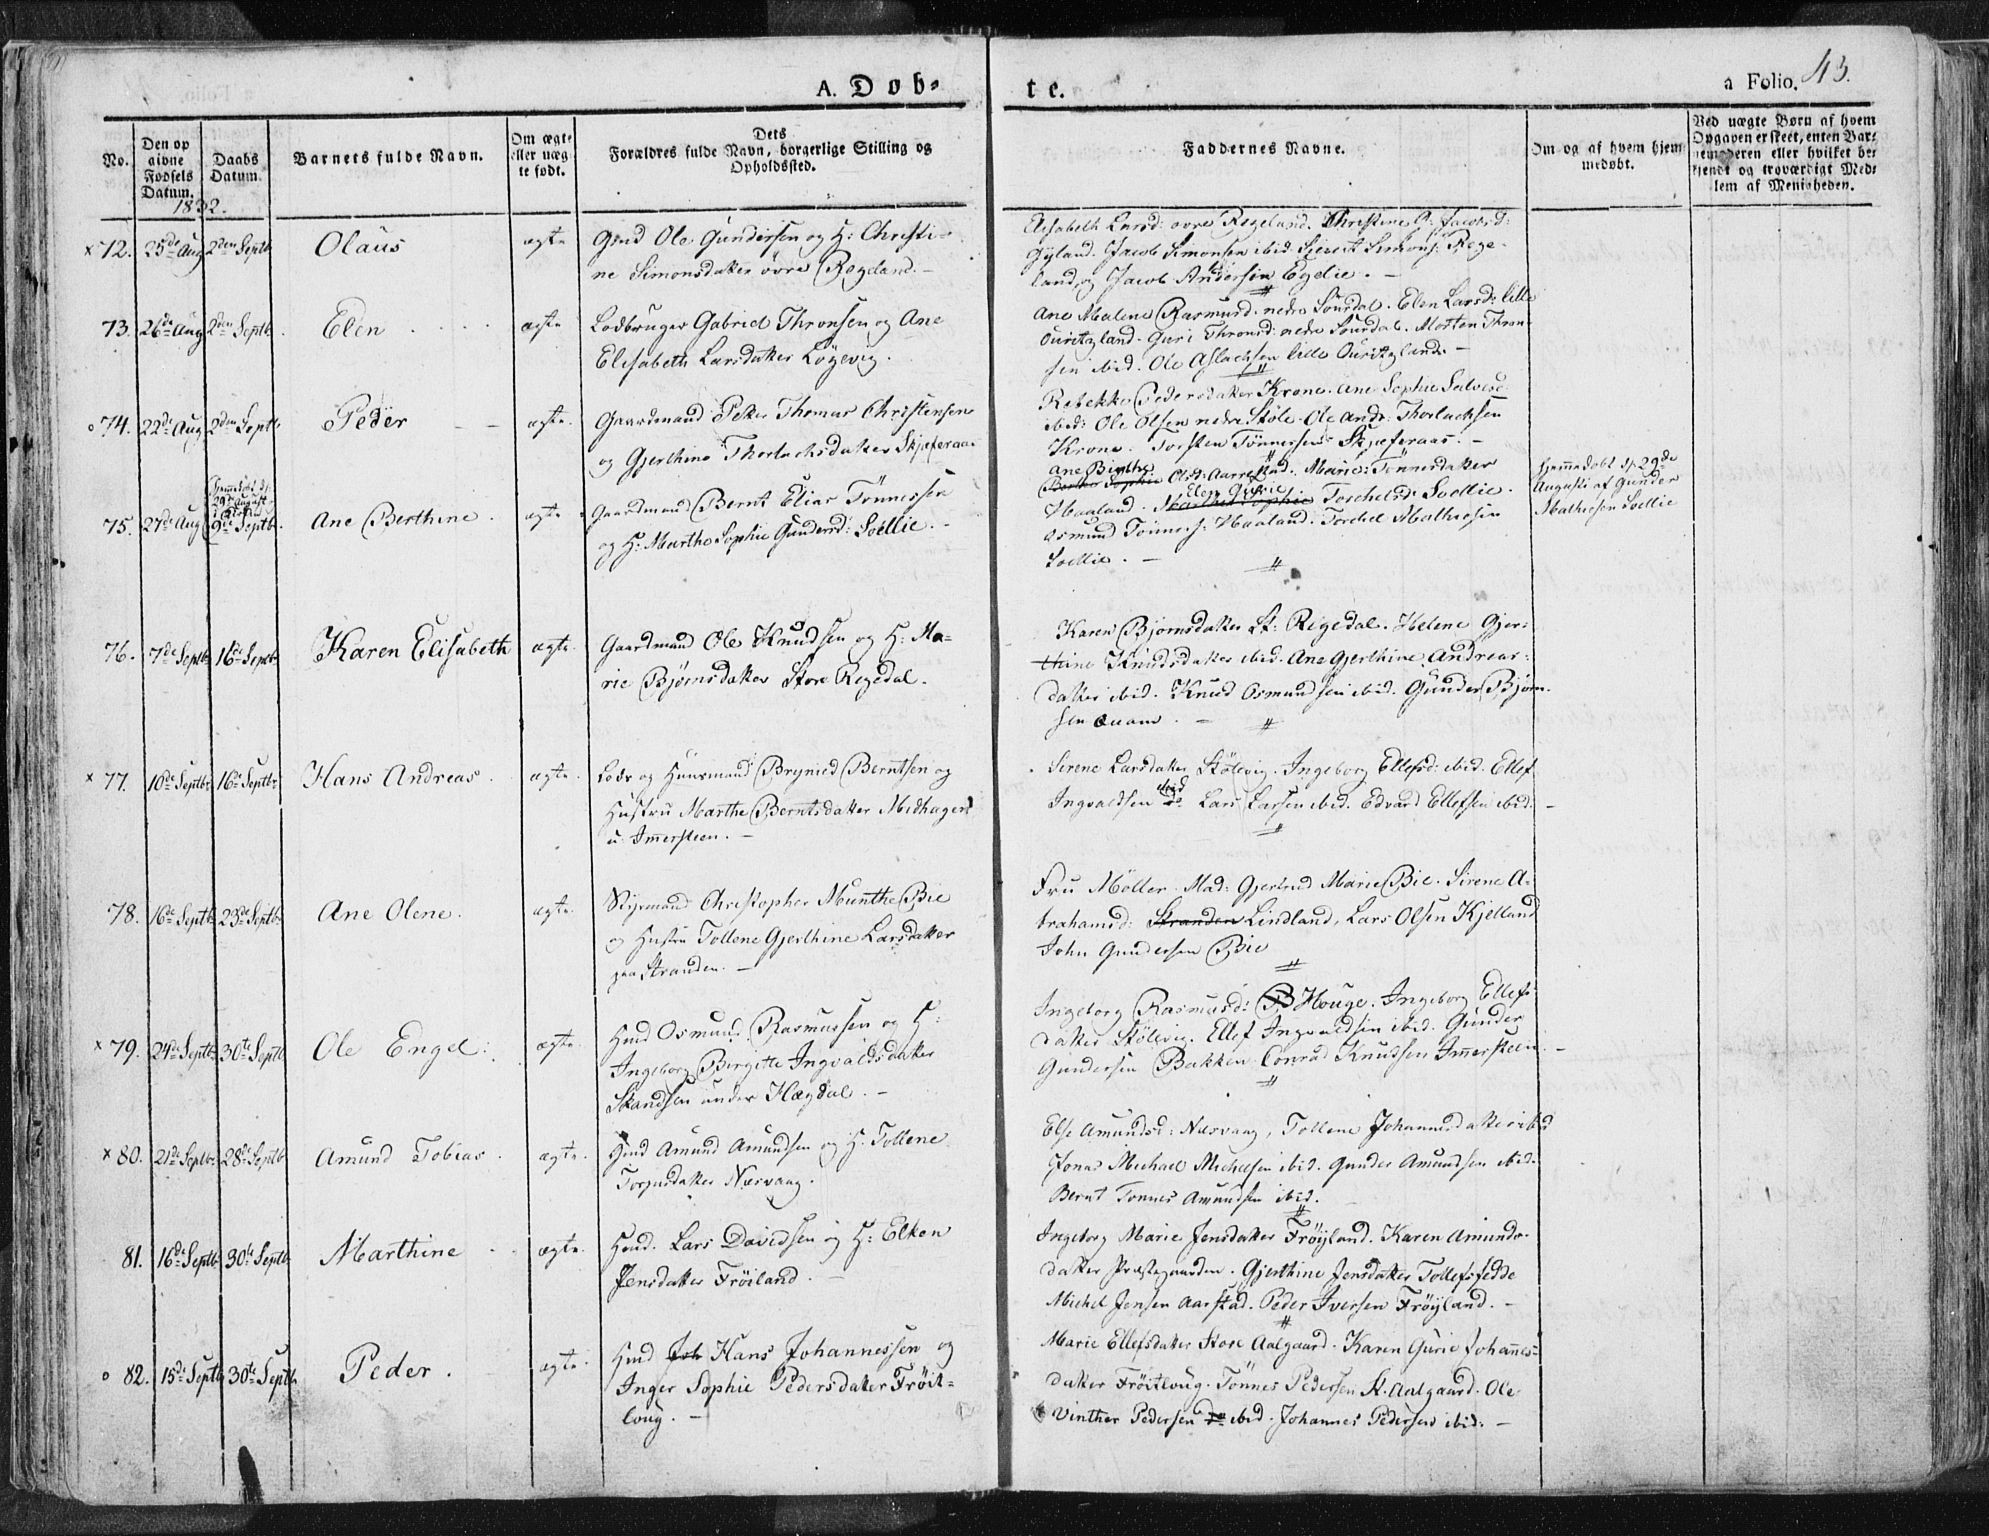 A. Dob=
te.
a Folio. 43.
No.
Den op
givne
Fødsels
Datum.
Daabs
Datum.
Barnets fulde Navn.
Om ægte
eller uæg
te født.
Dets
Forældres fulde Navn, borgerlige Stilling og
Opholdssted.
Faddernes Navne.
Om og af hvem hjem
medøbt.
Ved uægte Børn af hvem
Opgaven er skeet, enten Bar:
nemoderen eller hvilket be:
kjendt og troværdigt Med:
lem af Menigheden.
1832.
x 72. 25de Aug 2den Septb. Olaus ægte Gmd Ole Gundersen og H: Christi-
ne Simonsdatter övre Regeland. -
Elisabeth Larsd: övre Regeland. Christine P: Jacobsd:
Gyland. Jacob Simonsen ibid: Sivert Simons: Rege-
land, og Jacob Andersen Egelie. -
73. 26de Aug 2den Septb. Elen ægte Lodbruger Gabriel Thronsen og Ane
Elisabeth Larsdatter Løgevig.
Ane Malene Rasmusd. nedre Sourdal. Elen Larsd: lille
Ouritzland. Guri Thronsd: nedre Sourdal. Morten Thron-
sen ibid. Ole Aslachsen lille Ouritzland. -
o 74. 22de Aug 2den Septb. Peder ægte. Gaardmand Peter Thomas Christensen
og Gjerthine Thorlachsdatter Skjæferaas
Rebekke Pedersdatter Krone. Ane Sophie Salvesd
ibid: Ole Olsen nedre Støle. Ole Andr: Thorlachsen
Krone. Torsten Tønnessen Skjæferaas. -
75. 27de Aug 9de Septb. Ane Berthine. ægte Gaardmand Bernt Elias Tønnessen
og H: Marthe Sophie Gundersd: Soellie. -
Ane Birthe
Olsd: Aarrestad. Marie: Tønnesdatter
Haaland. Elen Gurie Torchelsd: Soellie.
Osmund Tønness: Haaland. Torchel Mathiesen
Soellie. -
hjemmedøbt d: 29de
Augusti af Gunder
Mathiesen Soellie
76. 7de Septb. 16de Septb. Karen Elisabeth ægte. Gaardmand Ole Knudsen og H: Ma-
rie Bjørnsdatter Store Regedal.
Karen Bjørnsdatter St: Regedal. Helene Gjer-
thine Knudsdatter ibid. Ane Gjerthine Andreas-
datter ibid. Knud Osmundsen ibid. Gunder Bjørn-
sen Quam. -
x 77. 10de Septb. 16de Septb. Hans Andreas. ægte. Lods og Huusmand Brynild Berntsen og
Hustru Marthe Berntsdatter Midhagen
u. Immersteen. -
Sirene Larsdatter Stölevig. Ingeborg Ellefsd: ibid. Ellef
Ingvaldsen ibid Lars Larsen ibid. Edvard Ellefsen ibid: -
78. 16de Septb. 23de Septb. Ane Olene. ægte. Styrmand Christopher Munthe Bie
og Hustru Tollene Gjerthine Larsdatter
paa Stranden. -
Fru Möller. Mad: Gjertrud Marie Bie. Sirene A-
brahamsd: Stranden Lindland, Lars Olsen Kjelland
John Gundersen Bie
x 79. 24de Septb. 30te Septb. Ole Engel. ægte. Hmd Osmund Rasmussen og H:
Ingeborg Birgitte Ingvaldsdatter
Skandsen under Hægdal. -
Ingeborg Rasmusd: Houge. Ingeborg Ellefs-
datter Stölevig. Ellef Ingvaldsen ibid. Gunder
Gundersen Bakken. Conrad Knudsen Immersteen. -
x 80. 21de Septb. 28de Septb Amund Tobias. ægte. Hmd Amund Amundsen og H: Tollene
Torjusdatter Næsvaag.
Else Amundsd: Næsvaag, Tollene Johannesdatter ibid
Jonas Michael Michelsen ibid. Gunder Amundsen ibid.
Bernt Tønnes Amundsen ibid.
81. 16de Septb. 30te Septb. Marthine ægte. Hmd. Lars Davidsen og H: Elken
Jensdatter Fröiland. -
Ingeborg Marie Jensdatter Fröyland. Karen Amunds-
datter Præstegaarden. Gjerthine Jensdatter Tollefsfedde
Michel Jensen Aarstad. Peder Iversen Fröyland. -
o 82. 15de Septb 30te Septb. Peder. ægte. Hmd Joh Hans Johannessen og
Inger Sophie Pedersdatter Fröit-
loug. -
Marie Ellefsdatter Store Aalgaard. Karen Gurie Johannes-
datter Fröitloug. Tönnes Pedersen St. Aalgaard. Ole
Vinther Pedersen do ibid. Johannes Pedersen ibid: -